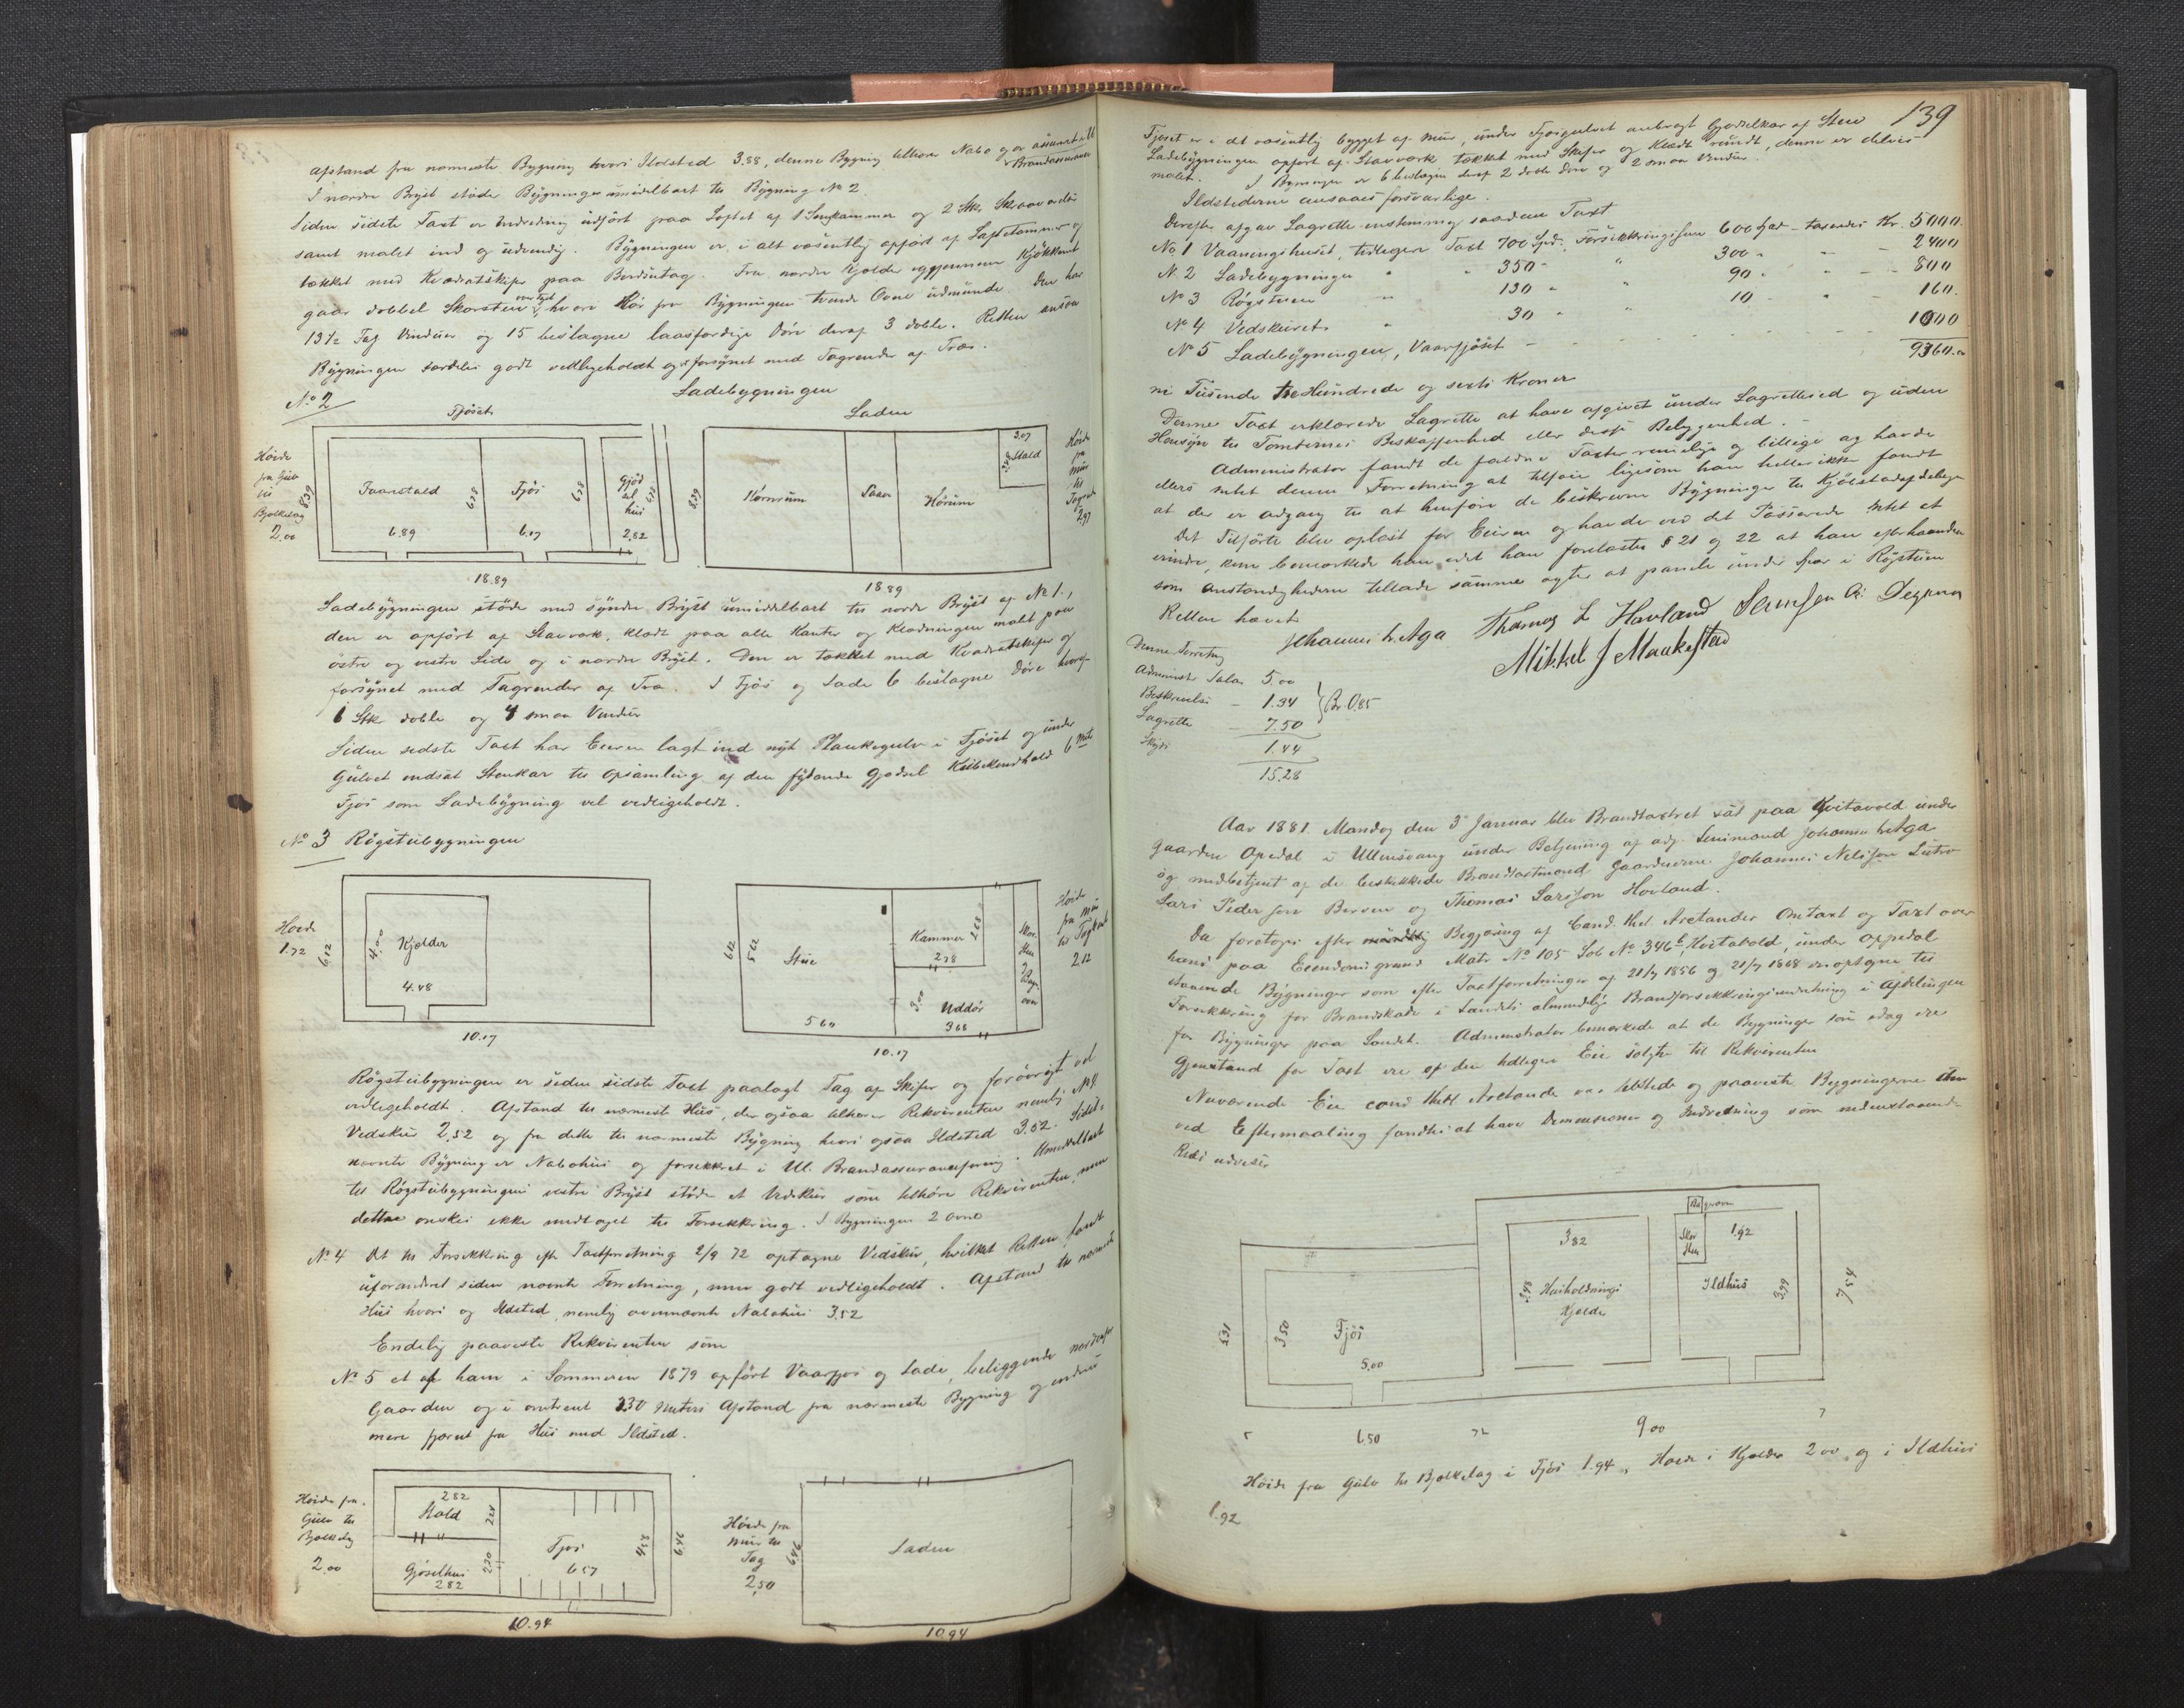 Afstand fra nærmeste Bygning hvori Ildsted 3.88, denne Bygning tilhører Nabo og er assureret i Ul
Brandassurance
I nordre Bryst støder Bygningen umidelbart til Bygning No 2.
Siden sidste Taxt er Indredning udført paa Loftet af 1 Sengkammer og 2 Stk. Skraaverelser
samt malet ind og udvendig. Bygningen er i alt væsentlig opført af Laftetømmer og
tækket med Kvadratskifer paa Bordsutag. Fra nordre Kjelder iggjennem Kjøkkenet
gaar dobbel Skorsten over Tag hvori Rør fra Bygningen tvende Ovne udmunde. Den har
13½ Fag Vinduer og 15 beslagne laasfærdige Døre deraf 3 doble. Retten ansaa
Bygningen særdeles godt vedligeholdt og er forsynet med Tagrender af Træ.
No 2
Ladebygningen
Fjøset
Laden
Høide
fra Gulv
til
Bjelkelag
2.00
8.39
Faarestald
6.89
6.28
Fjøs
6.17
6.28
Gjød
sel
hus
2,82
18.89
8.39
Kornrum
Laave
Hørum
3.07
Stald
18.89
Høide
fra
Mur
til
Tagrende
2,97
Ladebygningen støder med søndre Bryst umiddelbart til nordre Bryst af No 1.,
den er opført af Stavværk, klædt paa alle Kanter og Klædningen malt paa
østre og vestre Side og i nordre Bryst. Den er tækket med Kvadratskifer og
forsynet med Tagrender af Træ. I Fjøs og Lade 6 beslagne Døre hvoraf
1 Stk doble og 4 smaa Vinduer
Siden sidste Taxt har Eieren lagt ind nyt Plankegulv i Fjøset og under
Gulvet indsat Stenkar til Opsamling af den flydende Gjødsel Kubikindhold 6 Met
Fjøs som Ladebygning vel vedligeholdt.
No 3 Røgstubygningen
Høide
1.72
6.12
4.00
Kjelder
4.48
10.17
6.12
5.62
Stue
5.60
Kammer
2.78
2.68
3.00
Uddør
3.68
Skor-
sten
Bager
ovn
10.17
Høide
fra Mur
til Tagkant
2.12
Røgstubygningen er siden sidste Taxt paalagt Tag af Skifer og forøvrigt vel
vedligeholdt. Afstand til nærmeste Hus, der ogsaa tilhører Rekvirenten nemlig No 4.
Vedskur 2.52 og fra dette til nærmeste Bygning hvori ogsaa Ildsted 3.52. Sidst-
nævnte Bygning er Nabohus og forsikkret i Ul. Brandassuranceforening. Umiddelbart
til Røgstubygningens vestre Bryst støder et Vedskur som tilhører Rekvirenten, men
dette ønskes ikke medtaget til Forsikkring. I Bygningen 2 Ovne
No 4 Det til Forsikkring efter Taxtforretning 2/9 72 optagne Vedskur, hvilket Retten fandt
uforandret siden nævnte Forretning, men godt vedligeholdt. Afstand til nærmeste
Hus hvori og Ildsted, nemlig ovennævnte Nabohus 3.52
Endelig paaviste Rekvirenten som
No 5 et af ham i Sommeren 1879 opført Vaarfjøs og Lade, beliggende nordenfor
Gaarden og i omtrent 230 Meters Afstand fra nærmeste Bygning og endnu
mere fjernt fra Hus med Ildsted.
Høide fra
Gulv til
Bjelkelag
2.00
2.82
Stald
2.24
Gjøselhus
2.82
2.30
Fjøs
6.57
4.58
6.46
10.94
Høide fra
Mur til
Tag
2,50
6.46
Laden
10.94
139
Fjøset er i det væsentlig bygget af Mur, under Fjøsgulvet anbragt Gjødselkar af Sten
Ladebygningen opført af Stavværk tækket med Skifer og Klædt rundt, denne er delvis
malet. I Bygningen er 6 beslagne deraf 2 doble Døre og 2 smaa Vinduer.
Ildstederne ansaaes forsvarlige.
Derefter afgav Lagrette enstemmig saadan Taxt
No 1 Vaaningshuset, tidligere Taxt 700 Spd. Forsikkringssum 600 Spd – taxeredes Kr. 5000.
N. 2 Ladebygningen " " 350 – " 300 – – 2400
No 3 Røgstuen " 130 – " 90 – – 800
No 4 Vedskuret " 30 – " 10 – – 160.
No 5 Ladebygningen, Vaarfjøset – 1000
9360.
ni Tusende tre Hundrede og sexti Kroner
Denne Taxt erklærede Lagrette at have afgivet under Lagretteed og uden
Hensyn til Tomternes Beskaffenhed eller dessen Beliggenhed. –
Administrator fandt de faldne Taxter rimelige og billige og havde
ellers intet denne Forretning at tilføie ligesom han heller ikke fandt
at der er Adgang til at henføre de beskrevne Bygninger til Kjøbstadafdelingen
Det Tilførte blev oplæst for Eieren og havde ved det Passerede intet at
erindre, kun bemærkede han, idet han forelæstes § 21 og 22 at han efterhaanden
som Omstændighederne tillade samme agter at panele under Spær i Røgstuen
Retten hævet
Johannes L. Aga Thomas L Havland
Mikkel J Maakestad
Denne Forretning
Administr. Salær 5.00
Beskrivelse – 1.34
Lagrette – 7.50
Skyds 1.44
15.28
Aar 1881. Mandag den 3 Januar blev Brandtaxtret sat paa Kvitavold under
Gaarden Opedal i Ullensvang under Betjening af adj. Lensmand Johannes L. Aga
og medbetjent af de beskikkede Brandtaxtmænd Gaardeierne. Johannes Nelssøn Lutro
Lars Pederssen Berven og Thomas Larssøn Hovland.
Da foretoges efter Begjæring af Cand. theol. Aretander Omtaxt og Taxt over
hans paa Eiendomsgrund Matr No 105 Løb No 346 Kvitavold, under Oppedal
staaende Bygninger som efter Taxtforretninger af 21/7 1856 og 21/7 1868 er optagne til
Forsikkring for Brandskade i Landets almindelige Brandforsikkringsindretning i Afdelingen
for Bygninger paa Landet. Administrator bemærkede at de Bygninger som idag ere
Gjenstand for Taxt ere af den tidligere Eier solgte til Rekvirenten
Nuværende Eier cand theol Aretander var tilstede og paaviste Bygningerne
ved Eftermaaling fandtes at have Dimensioner og Indredning som nedenstaaende
Rids udviser
5.31
3.50
Fjøs
5.00
6.50
3.82
3.98
Husholdnings
Kjelder
Bagerovn
Skor
sten
1.92
Ildhus
3.99
7.54
9.00
Høide fra Gulv til Bjelkelag i Fjøs 1.94, Høide i Kjelder 2.00 og i Ildhus
1.92